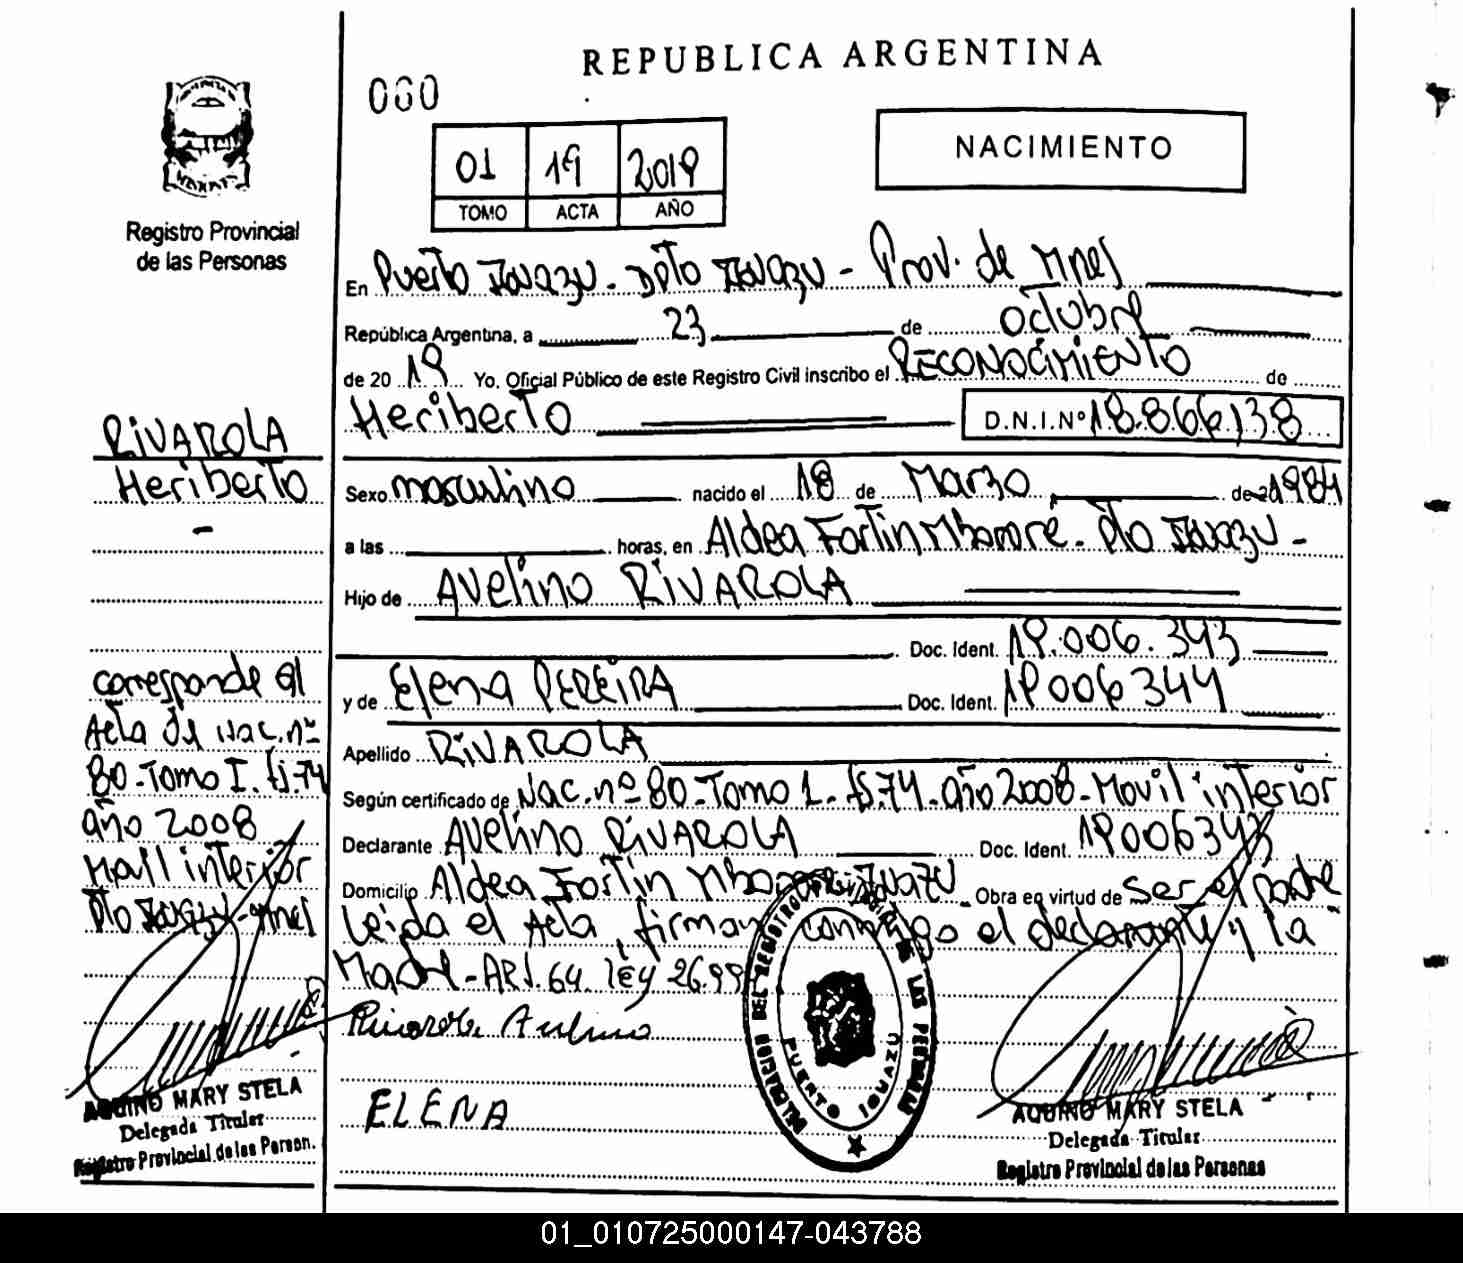 REPUBLICA ARGENTINA
060
01 19 2019
TOMO ACTA AÑO
NACIMIENTO
Registro Provincial
de las Personas
En Puerto Iguazu - Dpto Iguazu - Prov. de Mnes
República Argentina, a 23 de octubre
de 2019 Yo, Oficial Público de este Registro Civil inscribo el RECONOCIMIENTO de
Heriberto D.N.I.Nº 18.866.138
Sexo masculino nacido el 18 de Marzo de 1984
a las horas, en Aldea Fortin Mbororé - Pto Iguazu -
Hijo de Avelino RIVAROLA
Doc. Ident. 19.006.343
y de Elena PEREIRA Doc. Ident. 19006344
Apellido RIVAROLA
Según certificado de Nac. nº 80 - Tomo 1 - fs. 74 - año 2008 - Movil interior
Declarante Avelino RIVAROLA Doc. Ident. 19006343
Domicilio Aldea Fortin Mbororé Iguazu Obra en virtud de ser el padre
Leida el Acta, firman conmigo el declarante y la
Madre - ART. 64 ley 26.99
Rivarola Avelino
ELENA
DELEGACION DEL REGISTRO PROVINCIAL DE LAS PERSONAS
PUERTO IGUAZU
AQUINO MARY STELA
Delegada Titular
Registro Provincial de las Personas
RIVAROLA
Heriberto
-
corresponde al
Acta de Nac. nº
80 - Tomo I. fs. 74
año 2008
Movil interior
Pto Iguazu - Mnes
AQUINO MARY STELA
Delegada Titular
Registro Provincial de las Person.
01_010725000147-043788